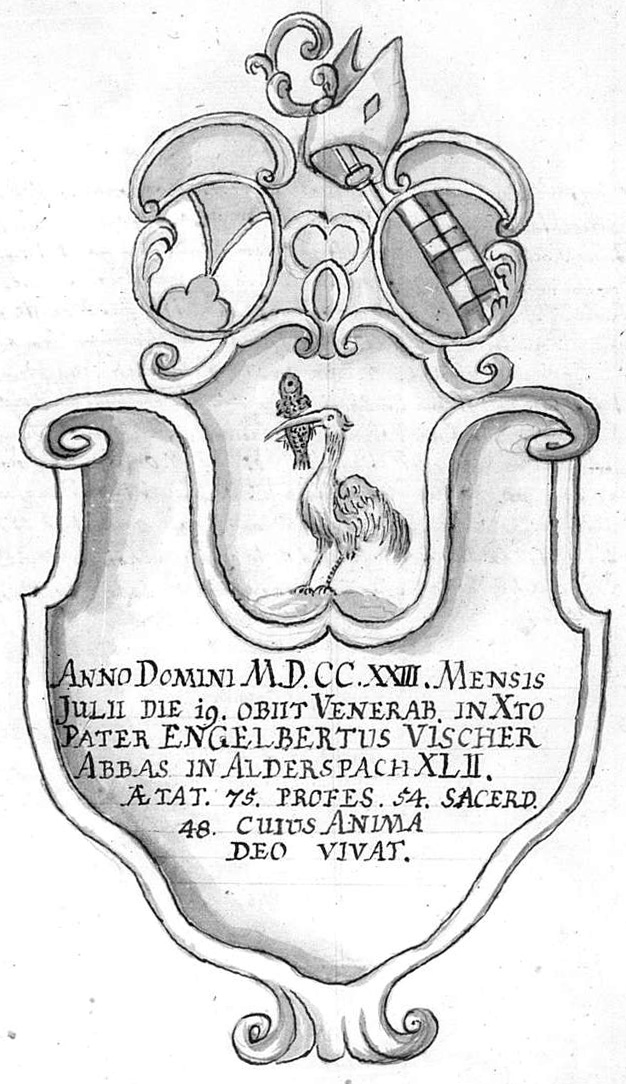 ANNO DOMINI M.D.CC.XXIII. MENSIS
JULII DIE 19. OBIIT VENERAB. IN XTO
PATER ENGELBERTUS VISCHER
ABBAS IN ALDERSPACH XLII.
ÆTAT. 75. PROFES. 54. SACERD.
48. CUIUS ANIMA
DEO VIVAT.